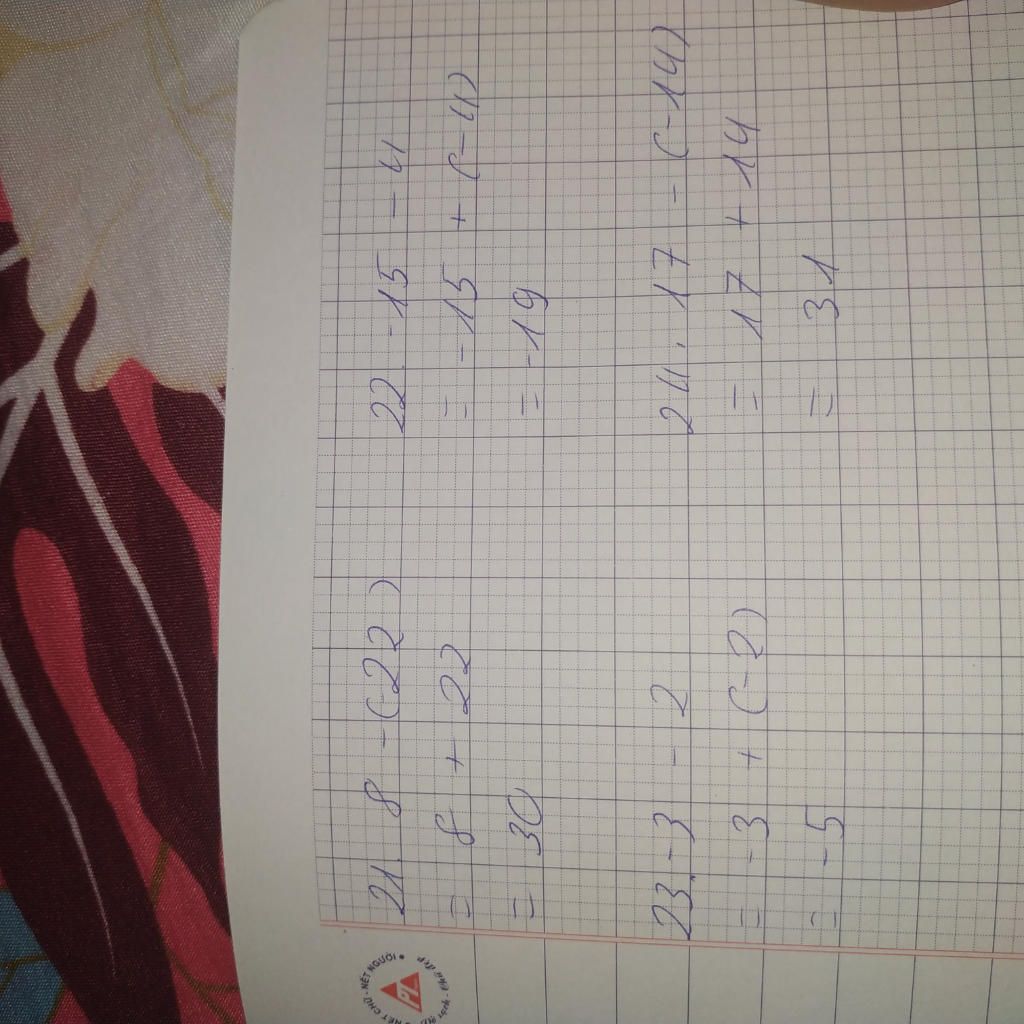 21. 8 - (-22)
= 8 + 22
= 30
22. -15 - 4
= -15 + (-4)
= -19
23. -3 - 2
= -3 + (-2)
= -5
24. 17 - (-14)
= 17 + 14
= 31
NÉT CHỮ - NẾT NGƯỜI
PL